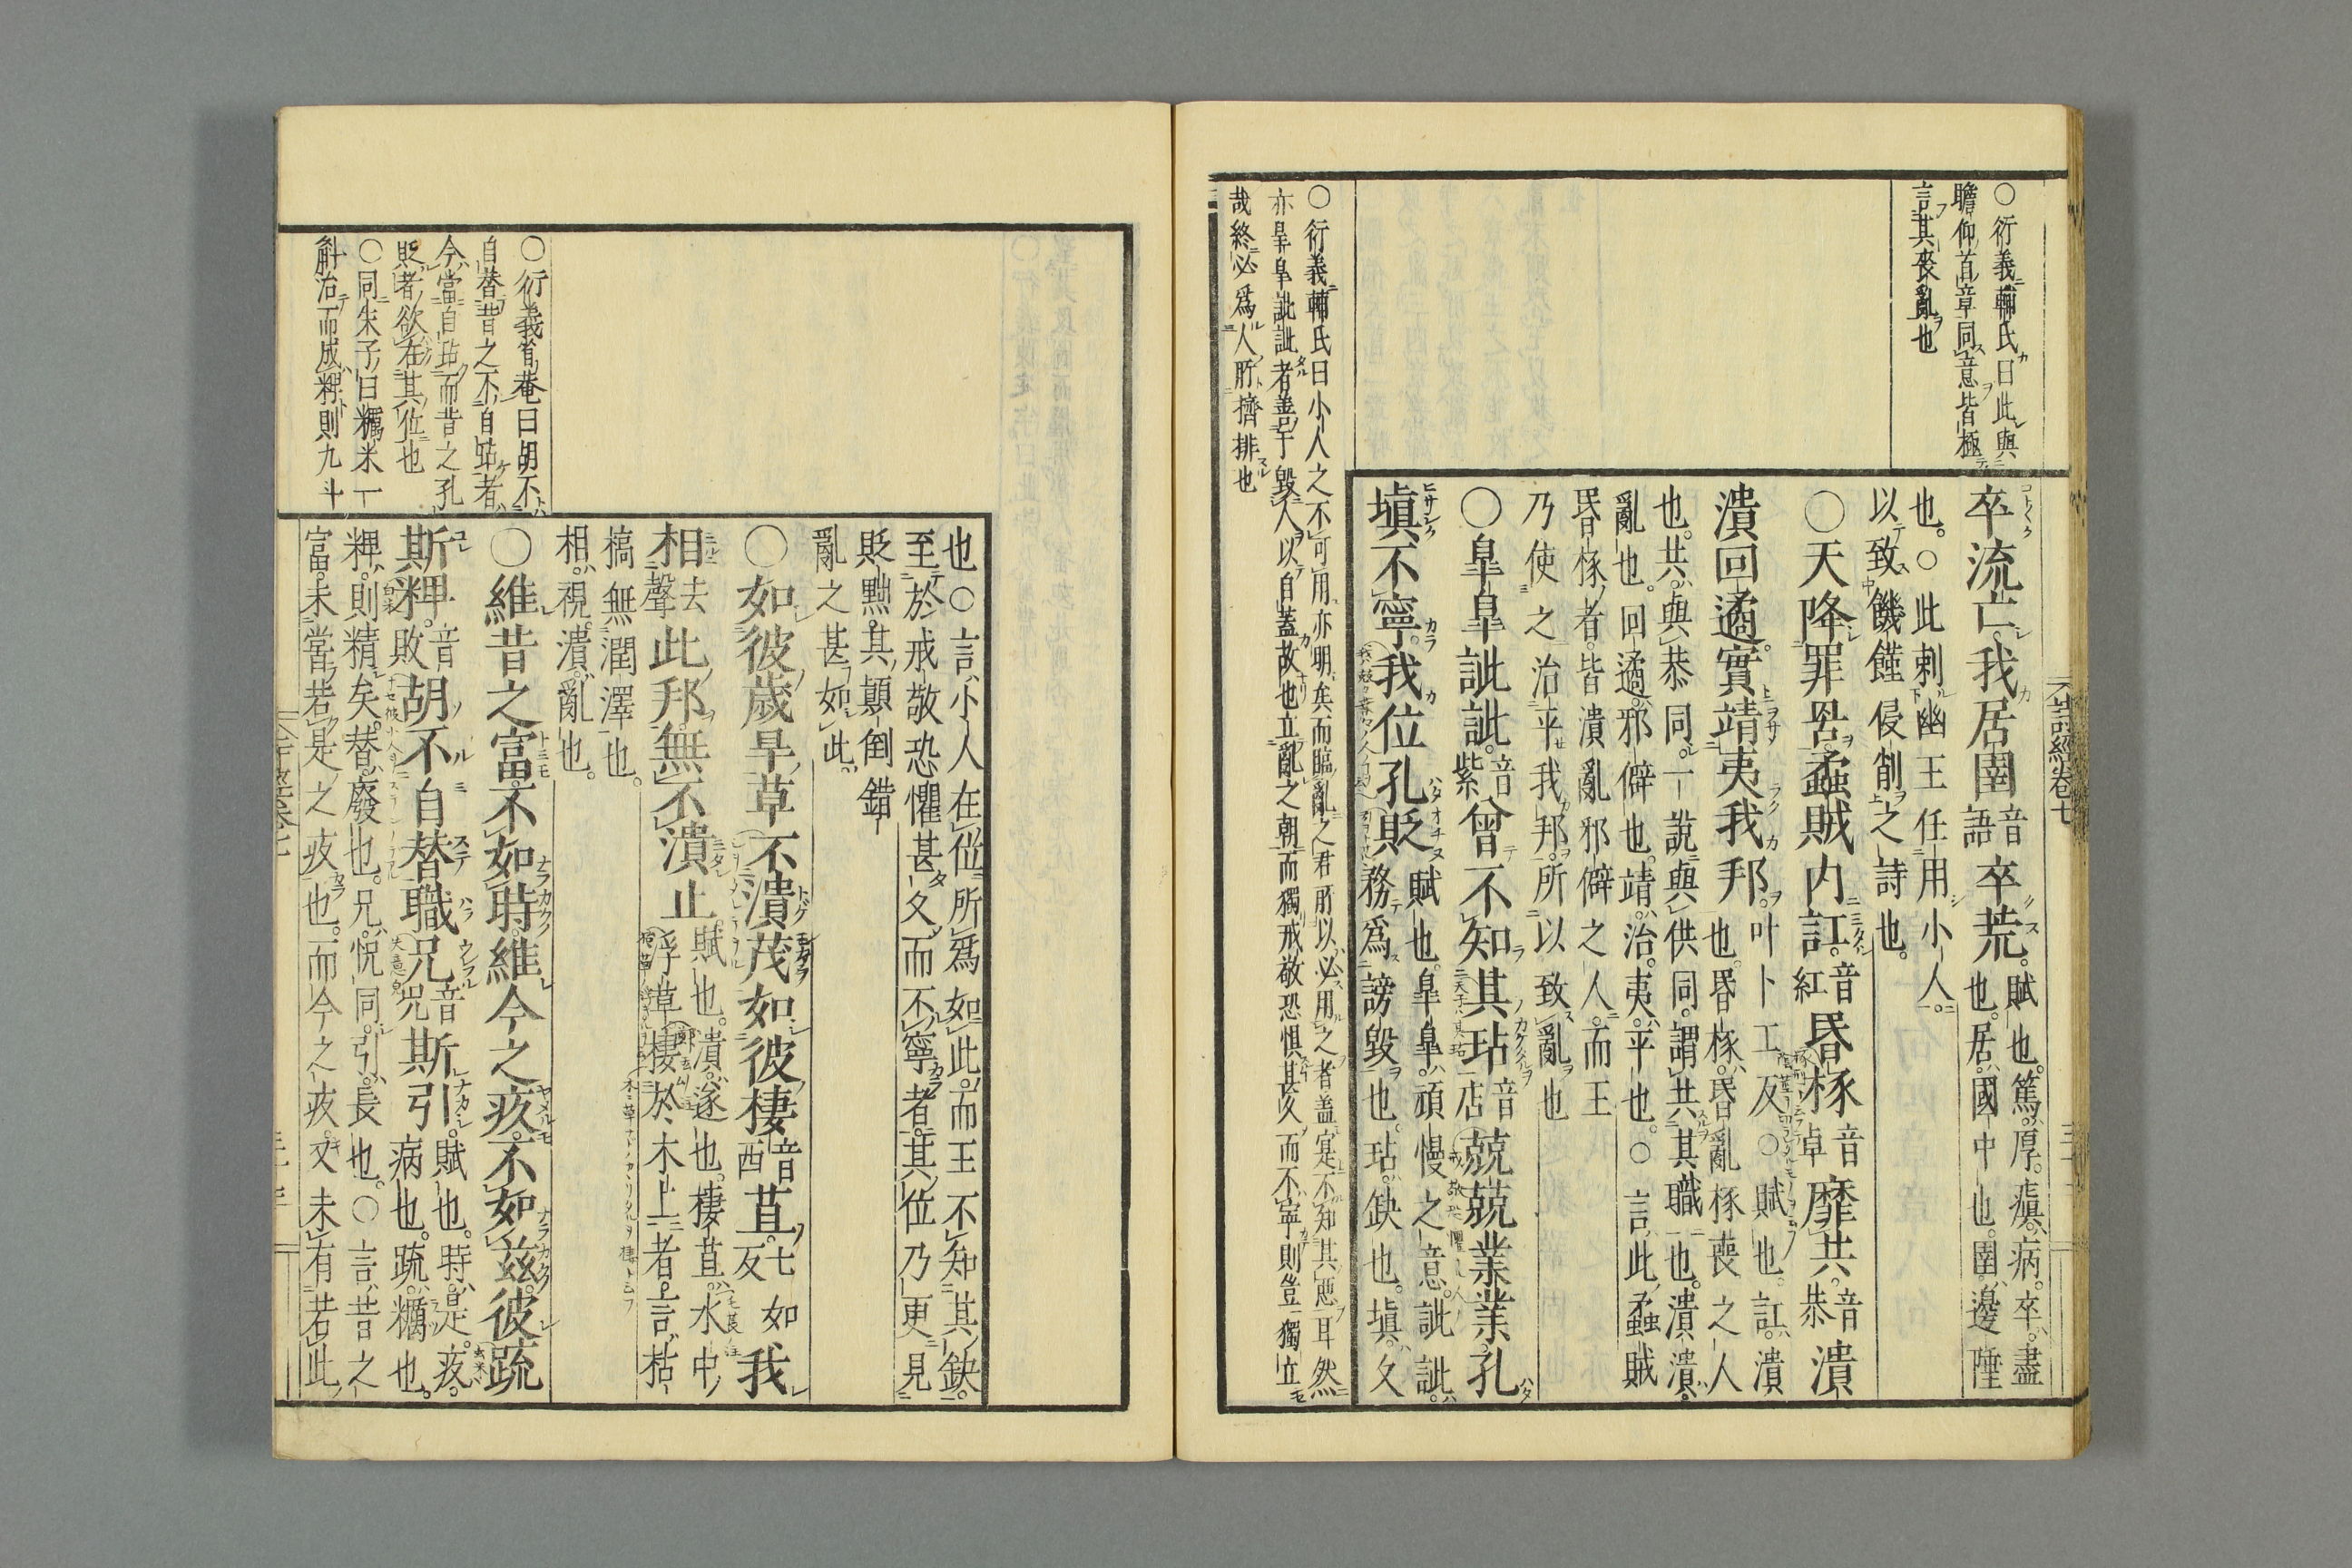 ○衍義輔氏曰此與
瞻仰首章同意皆極
言其喪亂也
卒流亡我居圉音語卒荒賦也篤厚瘨病卒盡
也居國中也圉邊陲
也○此刺幽王任用小人
以致饑饉侵削之詩也
○天降罪罟蟊賊内訌音紅昏椓音卓靡共音恭潰
潰回遹實靖夷我邦叶卜工反○賦也訌潰
也昏椓昏亂椓喪之人
也共與恭同一說與供同謂共其職也潰潰
亂也回遹邪僻也靖治夷平也○言此蟊賊
昏椓者皆潰亂邪僻之人而王
乃使之治平我邦所以致亂也
○皐皐訿訿音紫曾不知其玷音店兢兢業業孔
填不寧我位孔貶賦也皐皐頑慢之意訿訿
務爲謗毀也玷缺也填久
○衍義輔氏曰小人之不可用亦明矣而臨亂之君所以必用之者蓋寔不知其惡耳然
亦皐皐訿訿者善于毀人以自蓋故也立亂之朝而獨戒敬恐惧甚久而不寧則豈獨立
哉終必爲人所擠排也
也○言小人在位所爲如此而王不知其缺
至於戒敬恐懼甚久而不寧者其位乃更見
貶黜其顛倒錯
亂之甚如此
○如彼歲旱草不潰茂如彼棲音西苴七如反我
相去聲此邦無不潰止賦也潰遂也棲苴水中
浮草棲於木上者言枯
槁無潤澤也
相視潰亂也
○維昔之富不如時維今之疚不如茲彼疏
斯粺音敗胡不自替職兄音怳斯引賦也時是疚
病也疏糲也
粺則精矣替廢也兄怳同引長也○言昔之
富未嘗若是之疚也而今之疚又未有若此
○衍義省菴曰胡不
自替昔之不自玷者
今當自玷而昔之孔
貶者欲在其位也
○同朱子曰糲米一
斛治而成粺則九斗